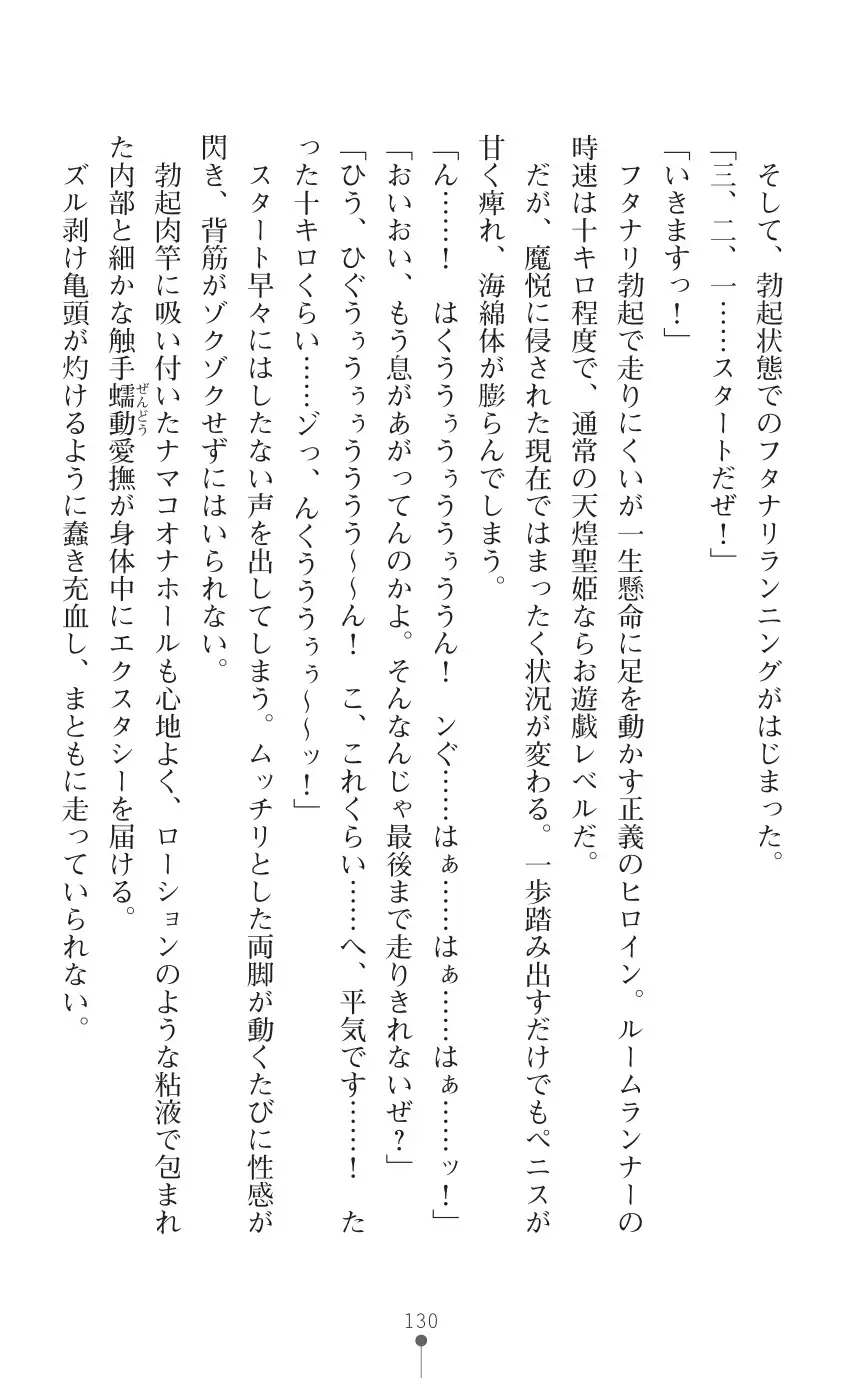 そして、勃起状態でのフタナリランニングがはじまった。
「三、二、一……スタートだぜ！」
「いきますっ！」
フタナリ勃起で走りにくいが一生懸命に足を動かす正義のヒロイン。ルームランナーの
時速は十キロ程度で、通常の天煌聖姫ならお遊戯レベルだ。
だが、魔悦に侵された現在ではまったく状況が変わる。一歩踏み出すだけでもペニスが
甘く痺れ、海綿体が膨らんでしまう。
「ん……！　はくううぅうぅううぅううん！　ンぐ……はぁ……はぁ……はぁ……ッ！」
「おいおい、もう息があがってんのかよ。そんなんじゃ最後まで走りきれないぜ？」
「ひう、ひぐうぅうぅぅううう～～ん！　こ、これくらい……へ、平気です……！　た
った十キロくらい……ゾっ、んくうううぅぅ～～ッ！」
スタート早々にはしたない声を出してしまう。ムッチリとした両脚が動くたびに性感が
閃き、背筋がゾクゾクせずにはいられない。
勃起肉竿に吸い付いたナマコオナホールも心地よく、ローションのような粘液で包まれ
た内部と細かな触手蠕動愛撫が身体中にエクスタシーを届ける。
ぜんどう
ズル剥け亀頭が灼けるように蠢き充血し、まともに走っていられない。
130